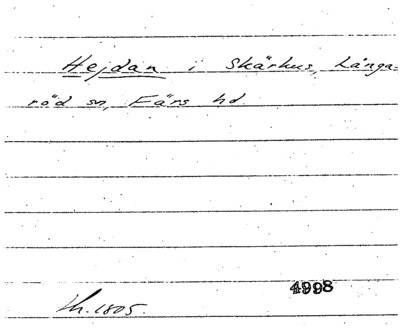 Hejdan i Skärhus, Långa-
röd sn, Färs hd.
4998
Lh. 1805.